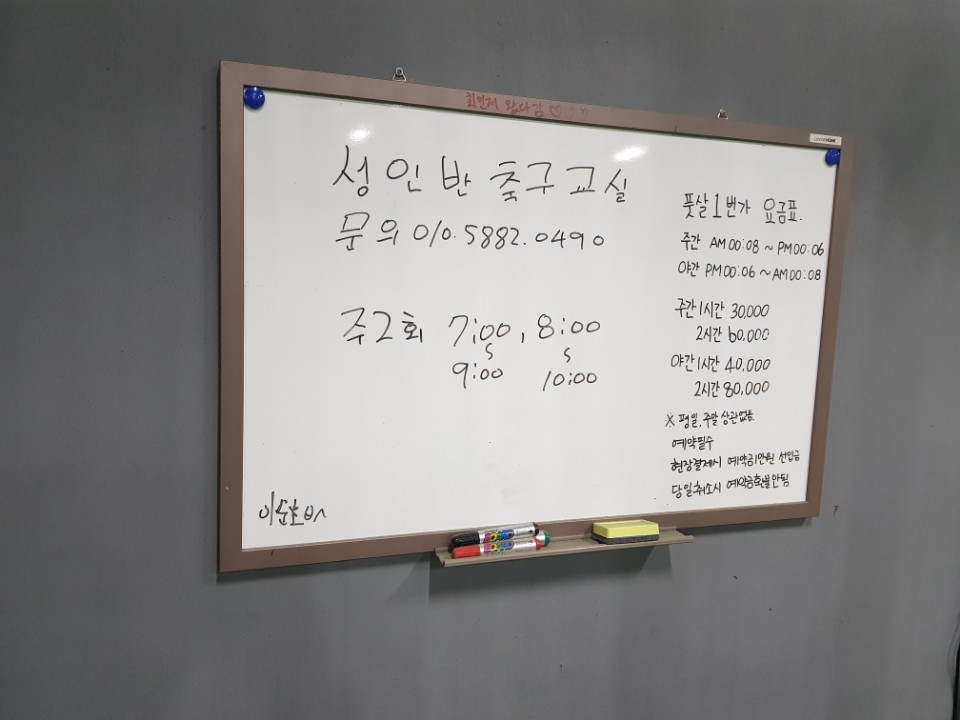 최연제 왔다감 ♡♡
성인반 축구교실
문의 010.5882.0490
주2회 7:00, 8:00
~ ~
9:00 10:00
풋살1번가 요금표.
주간 AM 00:08 ~ PM 00:06
야간 PM 00:06 ~ AM 00:08
주간 1시간 30,000
2시간 60,000
야간 1시간 40,000
2시간 80,000
※ 평일, 주말 상관없음.
예약필수
현장결제시 예약금1만원 선입금
당일취소시 예약금환불안됨